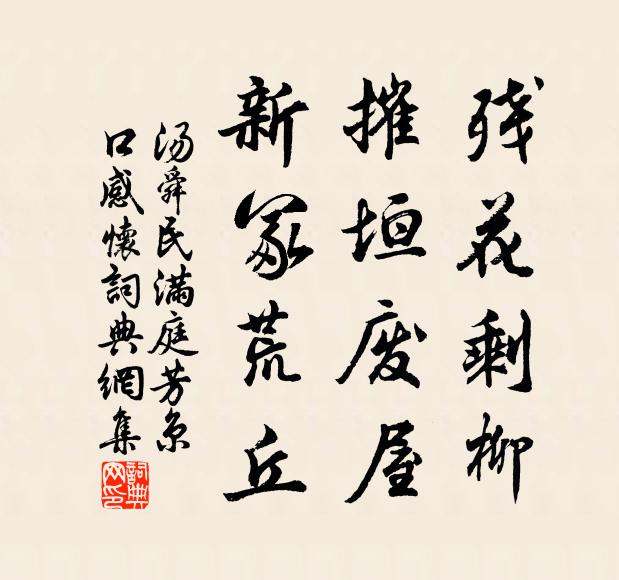 残花剩柳
摧垣废屋
新冢荒丘
汤舜民满庭芳京
口感怀词典网集
词典网印